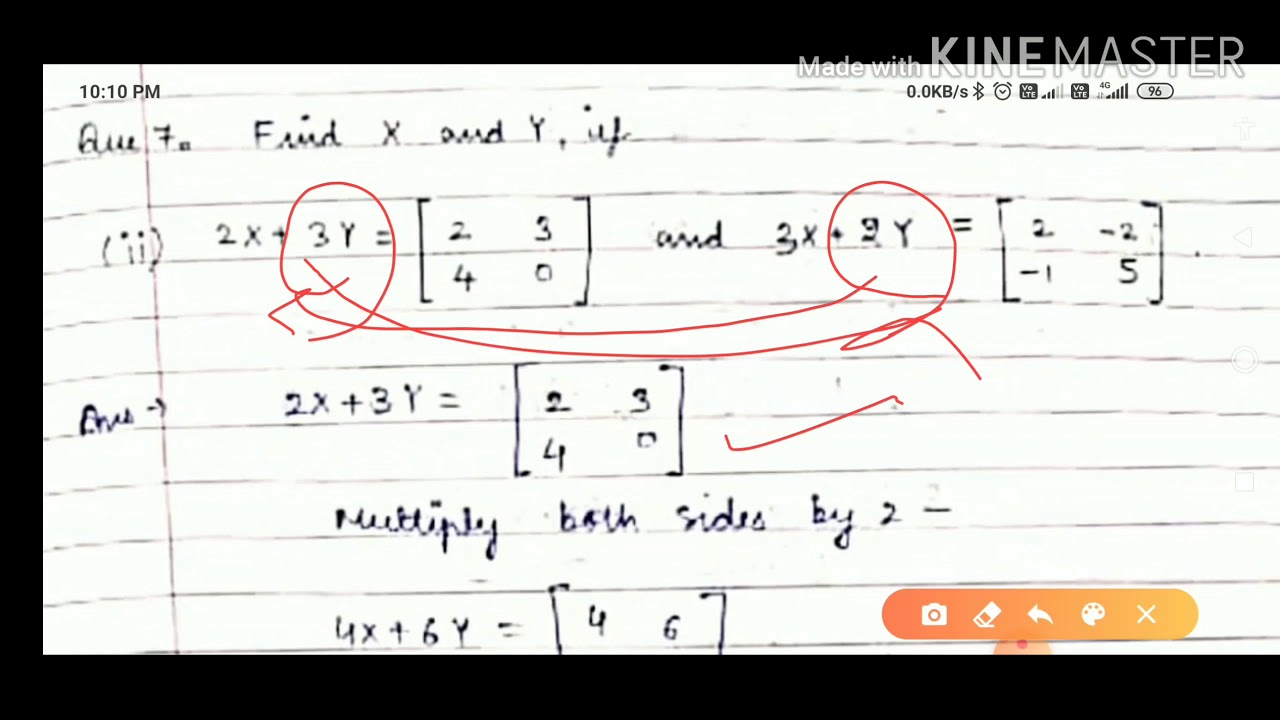 Made with KINEMASTER
10:10 PM 0.0KB/s Vo LTE Vo LTE 4G 96
Que 7. Find X and Y, if
(ii) 2X + 3Y = [2 3 and 3X + 2Y = [2 -2
4 0] -1 5].
Ans → 2X + 3Y = [2 3
4 0]
Multiply both sides by 2 —
4X + 6Y = [4 6]